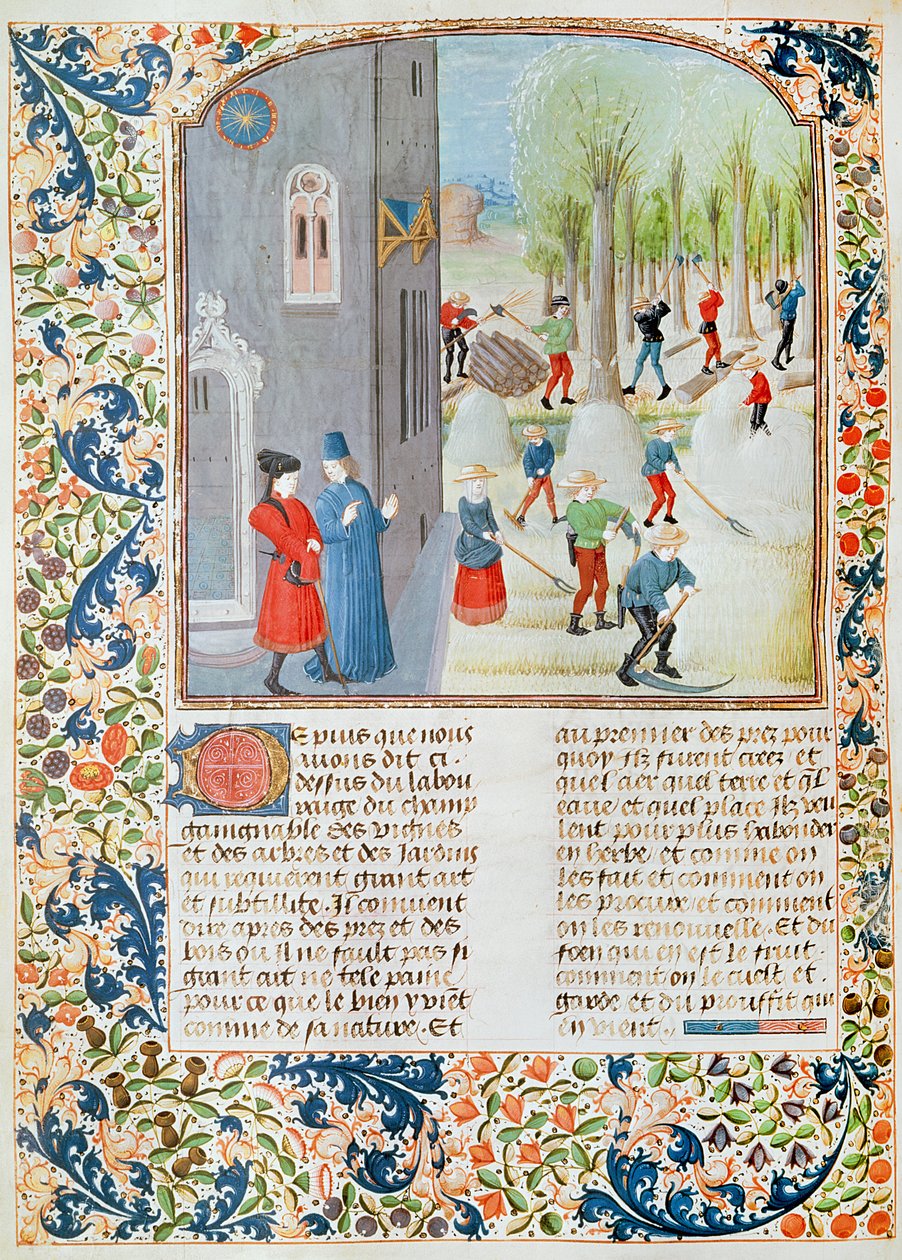 De puis que nous
auons dit ci
dessus du labou
raige du champ
gaingnable des vignes
et des arbres et des Jardins
qui requierent grant art
et subtillite. Il conuient
dire apres des prez et des
bois ou il ne fault pas si
grant art ne tele paine
pour ce que le bien y viẽt
comme de sa nature. Et
au premier des prez pour
quoy Ilz furent creez et
quel aer quel terre et q̃l
eaue et quel place Ilz veu
lent pour plus habonder
en herbe et comme on
les fait et comment on
les procure et comment
on les renouuelle. Et du
foen qui en est le fruit.
comment on le cuelt et
garde et du prouffit qui
en vient.